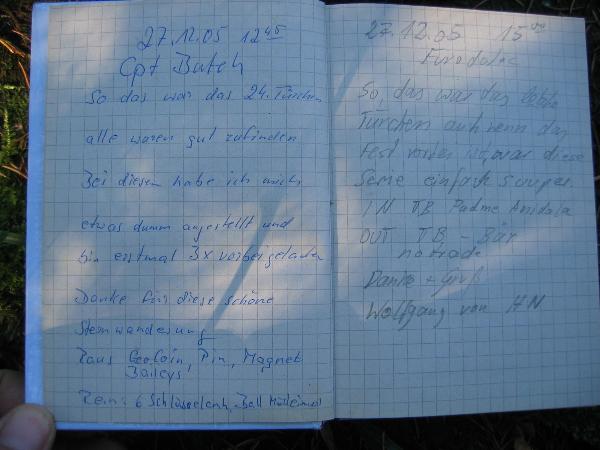 27.12.05 12 45
Cpt Butch
So das war das 24. Türchen
alle waren gut zufinden
Bei diesem habe ich mich
etwas dumm angestellt und
bin erstmal 3x vorbeigelaufen
Danke für diese schöne
Sternwanderung
Raus GeoCoin, Pin, Magnet
Baileys
Rein: 6 Ball
27.12.05 15 00
So, das war das letzte
Türchen auch wenn das
Fest vorbei ist, war diese
Serie einfach souper.
IN TB Padme Amidala
OUT TB - Bär
no trade
Danke + Gruß
Wolfgang von HN